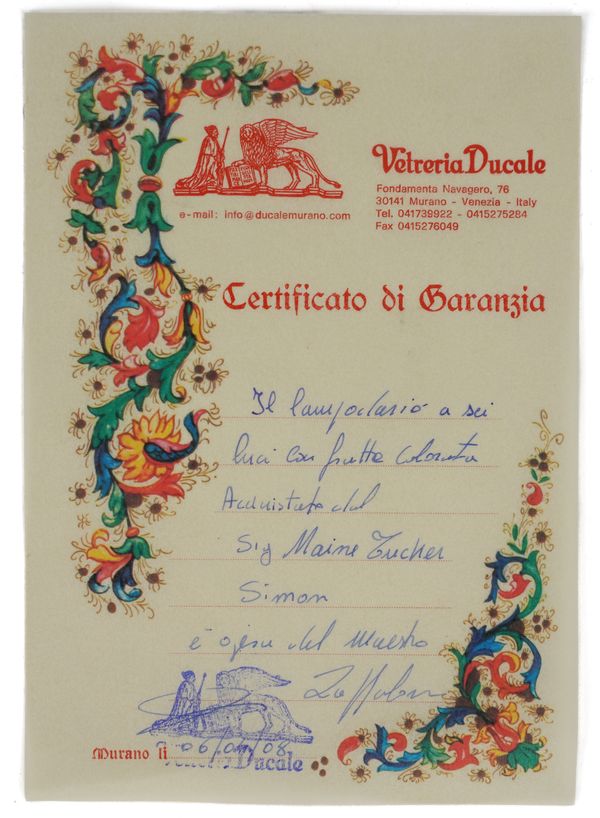 Vetreria Ducale
Fondamenta Navagero, 76
30141 Murano - Venezia - Italy
Tel. 041739922 - 0415275284
Fax 0415276049
e-mail: info@ducalemurano.com
Certificato di Garanzia
Il lampadario a sei
luci con frutta colorata
Acquistato dal
Sig Maine Tucker
Simon
è opera del Maestro
Murano li 06/ /08
Ducale